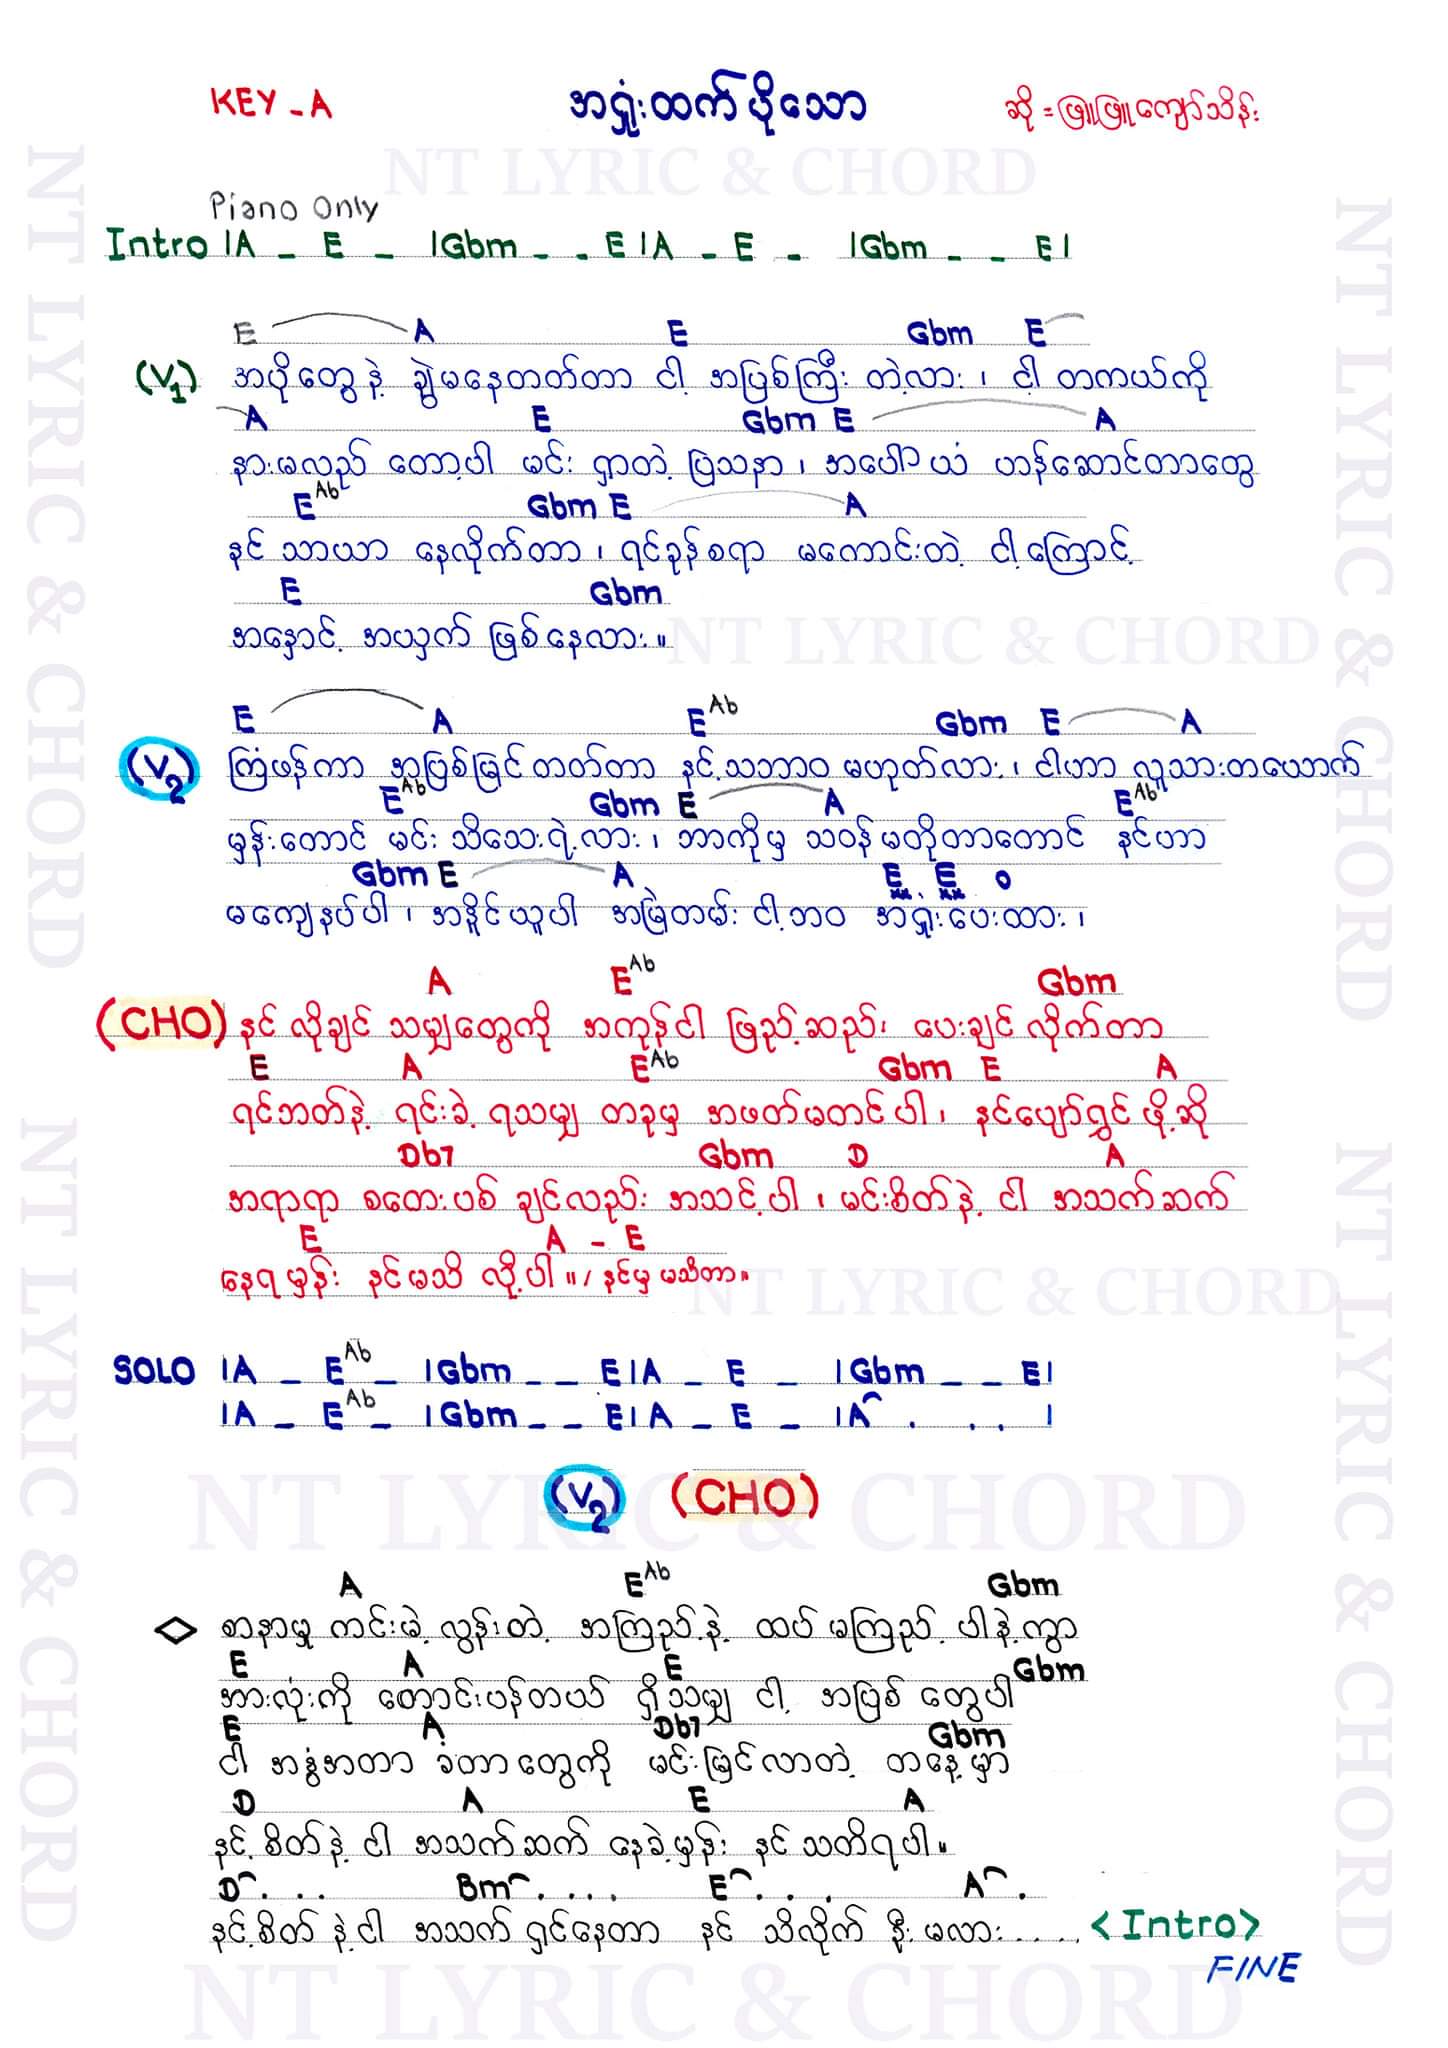 KEY - A
အရှုံးထက်ပိုသော
ဆို = ဖြူဖြူကျော်သိန်း
Piano Only
Intro |A _ E _ |Gbm _ _ E |A _ E _ |Gbm _ _ E |
E A E Gbm E
(V1) အပိုတွေနဲ့ ချွဲမနေတတ်တာ ငါ့ အပြစ်ကြီး တဲ့လား ၊ ငါ့ တကယ်ကို
A E Gbm E A
နားမလည် တော့ပါ မင်း ရှာတဲ့ ပြဿနာ ၊ အပေါ်ယံ ဟန်ဆောင်တာတွေ
E Ab Gbm E A
နင် သာယာ နေလိုက်တာ ၊ ရင်ခုန်စရာ မကောင်းတဲ့ ငါ့ကြောင့်
E Gbm
အနှောင့် အယှက် ဖြစ်နေလား ။
E A E Ab Gbm E A
(V2) ကြံဖန်ကာ အပြစ်မြင်တတ်တာ နင့်သဘာဝ မဟုတ်လား ၊ ငါဟာ လူသားတယောက်
E Ab Gbm E A E Ab
မှန်းတောင် မင်း သိသေးရဲ့လား ၊ ဘာကိုမှ သဝန်မတိုတာတောင် နင်ဟာ
Gbm E A E E 0
မကျေနပ်ပါ ၊ အနိူင်ယူပါ အမြဲတမ်း ငါ့ဘဝ အရှုံးပေးထား ၊
A E Ab Gbm
(CHO) နင် လိုချင် သမျှတွေကို အကုန်ငါ ဖြည့်ဆည်း ပေးချင် လိုက်တာ
E A E Ab Gbm E A
ရင်ဘတ်နဲ့ ရင်းခဲ့ ရသမျှ တခုမှ အဖတ်မတင်ပါ ၊ နင်ပျော်ရွှင် ဖို့ဆို
Db7 Gbm D A
အရာရာ စတေးပစ် ချင်လည်း အသင့်ပါ ၊ မင်းစိတ်နဲ့ ငါ အသက်ဆက်
E A - E
နေရမှန်း နင်မသိ လို့ပါ ။ / နင်မှ မသိတာ ။
SOLO |A _ E Ab _ |Gbm _ _ E |A _ E _ |Gbm _ _ E |
|A _ E Ab _ |Gbm _ _ E |A _ E _ |A . . . |
(V2) (CHO)
A E Ab Gbm
စာနာမှု ကင်းမဲ့ လွန်းတဲ့ အကြည့်နဲ့ ထပ် မကြည့် ပါနဲ့ကွာ
E A E Gbm
အားလုံးကို တောင်းပန်တယ် ရှိသမျှ ငါ့ အပြစ် တွေပါ
E A Db7 Gbm
ငါ အနွံအတာ ခံတာတွေကို မင်းမြင်လာတဲ့ တနေ့မှာ
D A E A
နင့်စိတ်နဲ့ ငါ အသက်ဆက် နေခဲ့မှန်း နင် သတိရပါ ။
D . . . Bm . . . . E . . . A .
နင့်စိတ် နဲ့ငါ အသက် ရှင်နေတာ နင် သိလိုက် နိူးမလား . . . . <Intro>
FINE
NT LYRIC & CHORD
NT LYRIC & CHORD
NT LYRIC & CHORD
NT LYRIC & CHORD
NT LYRIC & CHORD
NT LYRIC & CHORD
NT LYRIC & CHORD
NT LYRIC & CHORD
NT LYRIC & CHORD